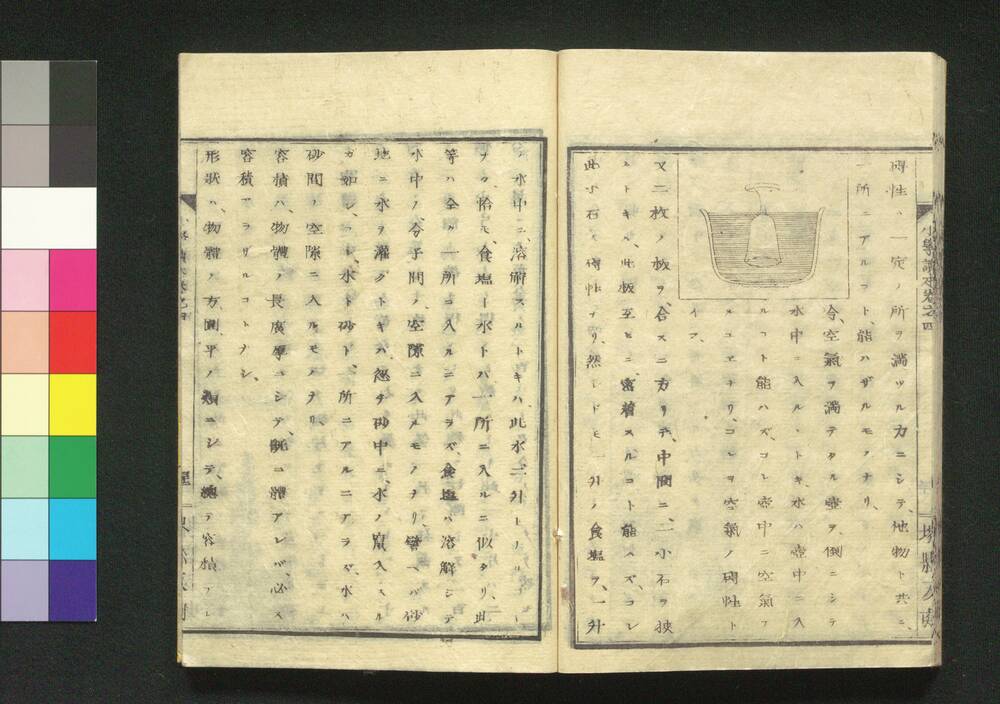 碍性ハ、一定ノ所ヲ満ツル力ニシテ、他物ト共ニ、
一所ニアルコト、能ハザルモノナリ、
今、空氣ヲ満テタル壺ヲ、倒ニシテ
水中ニ入ル、トキ水ハ壺中ニ入
ルコト能ハズ、コレ壺中ニ空氣ア
ルユヱナリ、コレヲ空氣ノ碍性ト
イフ、
又二枚ノ板ヲ、合スニ方リテ、中間ニ、一小石ヲ挾
ムトキハ、此板互ヒニ密着スルコト能ハズ、コレ
此小石ニ碍性アリ、然レドモ一升ノ食塩ヲ、一升
ノ水中ニ、溶解スルトキハ、此水二升トナルコト
ナク、恰モ食塩ト水トハ、一所ニ入ルニ似タリ、此
等ハ全ク一所ニ入ルニアラズ、食塩ハ溶解シテ
水中ノ、分子間ノ、空隙ニ入ルモノナリ、譬ヘバ砂
地ニ水ヲ灌グトキハ、忽チ砂中ニ、水ノ竄入スル
ガ如シ、コレ水ト砂ト、一所ニアルニアラズ、水ハ
砂間ノ空隙ニ入ルモノナリ、
容積ハ、物體ノ長廣厚ニシテ、既ニ體アレバ、必ス
容積アラザルコトナシ、
形状ハ、物體ノ方圓平ノ類ニシテ、總テ容積アレ
小學讀本卷之四